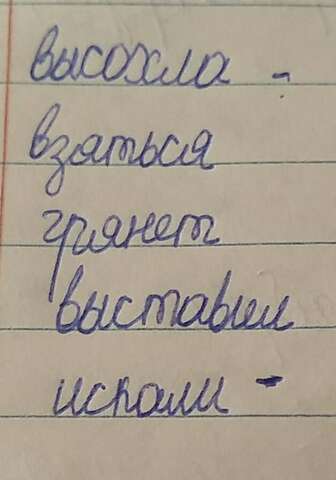 высохла -
взяться
грянет
выставил
искали -